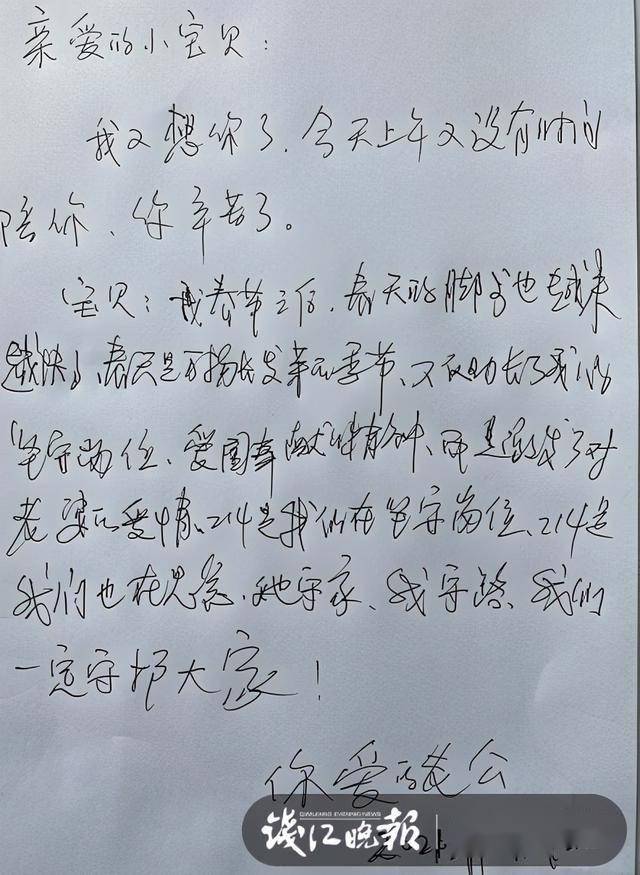 亲爱的小宝贝：
我又想你了，今天上午又没有时间
陪你、你辛苦了。
宝贝：我春节之后，春天的脚步也越来
越快了、春天是万物生发芽的季节、不仅助长了我们
坚守岗位、爱国奉献精神、而且激发了对
老婆的爱情、214是我们在坚守岗位、214是
我们也在思念、她守家、我守路、我们
一定守护大家！
你爱的老公
钱江晚报
QIANJIANG EVENING NEWS